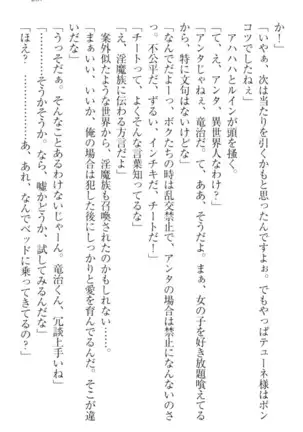 か！」
「いやぁ、次は当たりを引くかもと思ったんですよぉ。でもやっぱテューネ様はポン
コツでしたねぇ」
アハハハとルインが頭を掻く。
「て、え、アンタ、異世界人なわけ？」
「アンタじゃねぇ、竜治だ。て、ああ、そうだよ。まぁ、女の子を好き放題喰えてる
から、特に文句はないけどな」
「なんでだよーっ、ボクたちの時は乱交禁止で、アンタの場合は禁止になんないのさ
っ。不公平だ、ずるい、インチキだ、チートだ！」
「チートって、よくそんな言葉知ってるな」
「え、淫魔族に伝わる方言だよ」
案外似たような世界から、淫魔族も召喚されたのかもしれない……
「まぁいい、いいか、俺の場合は犯した後にしっかりと愛を育んでるんだ。そこが違
いだな」
「うっそだぁ。そんなことあるわけないじゃーん。竜治くん、冗談上手いね」
「………そうかそうか。なら、嘘かどうか、試してみるんだな」
「ほえ？　………あ、あれ、なんでベッドに乗ってきてるの？」